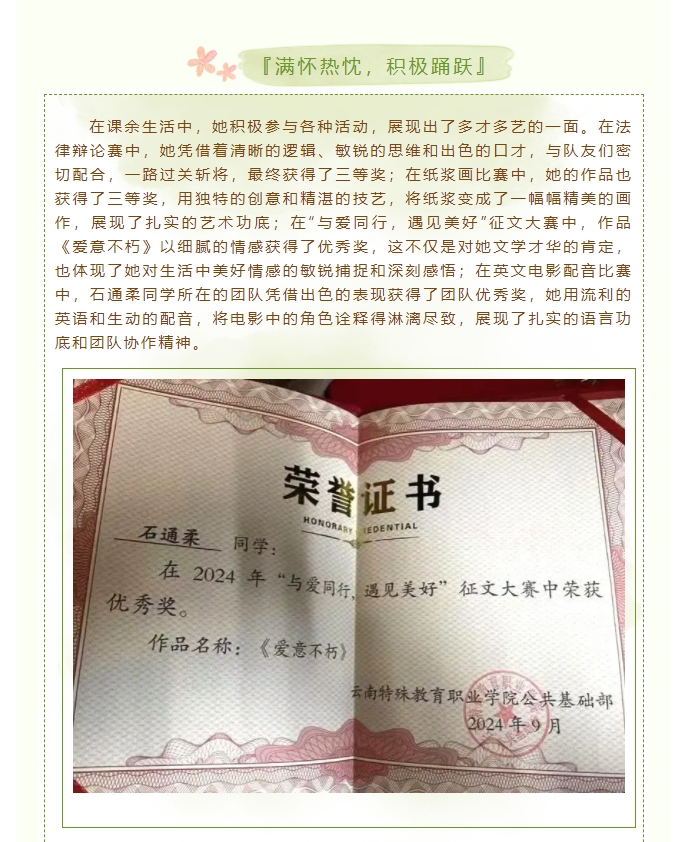 『满怀热忱，积极踊跃』
在课余生活中，她积极参与各种活动，展现出了多才多艺的一面。在法
律辩论赛中，她凭借着清晰的逻辑、敏锐的思维和出色的口才，与队友们密
切配合，一路过关斩将，最终获得了三等奖；在纸浆画比赛中，她的作品也
获得了三等奖，用独特的创意和精湛的技艺，将纸浆变成了一幅幅精美的画
作，展现了扎实的艺术功底；在“与爱同行，遇见美好”征文大赛中，作品
《爱意不朽》以细腻的情感获得了优秀奖，这不仅是对她文学才华的肯定，
也体现了她对生活中美好情感的敏锐捕捉和深刻感悟；在英文电影配音比赛
中，石通柔同学所在的团队凭借出色的表现获得了团队优秀奖，她用流利的
英语和生动的配音，将电影中的角色诠释得淋漓尽致，展现了扎实的语言功
底和团队协作精神。
荣誉证书
HONORARY
石通柔 同学：
在 2024 年“与爱同行，遇见美好”征文大赛中荣获
优秀奖。
作品名称：《爱意不朽》
云南特殊教育职业学院公共基础部
2024 年 9 月